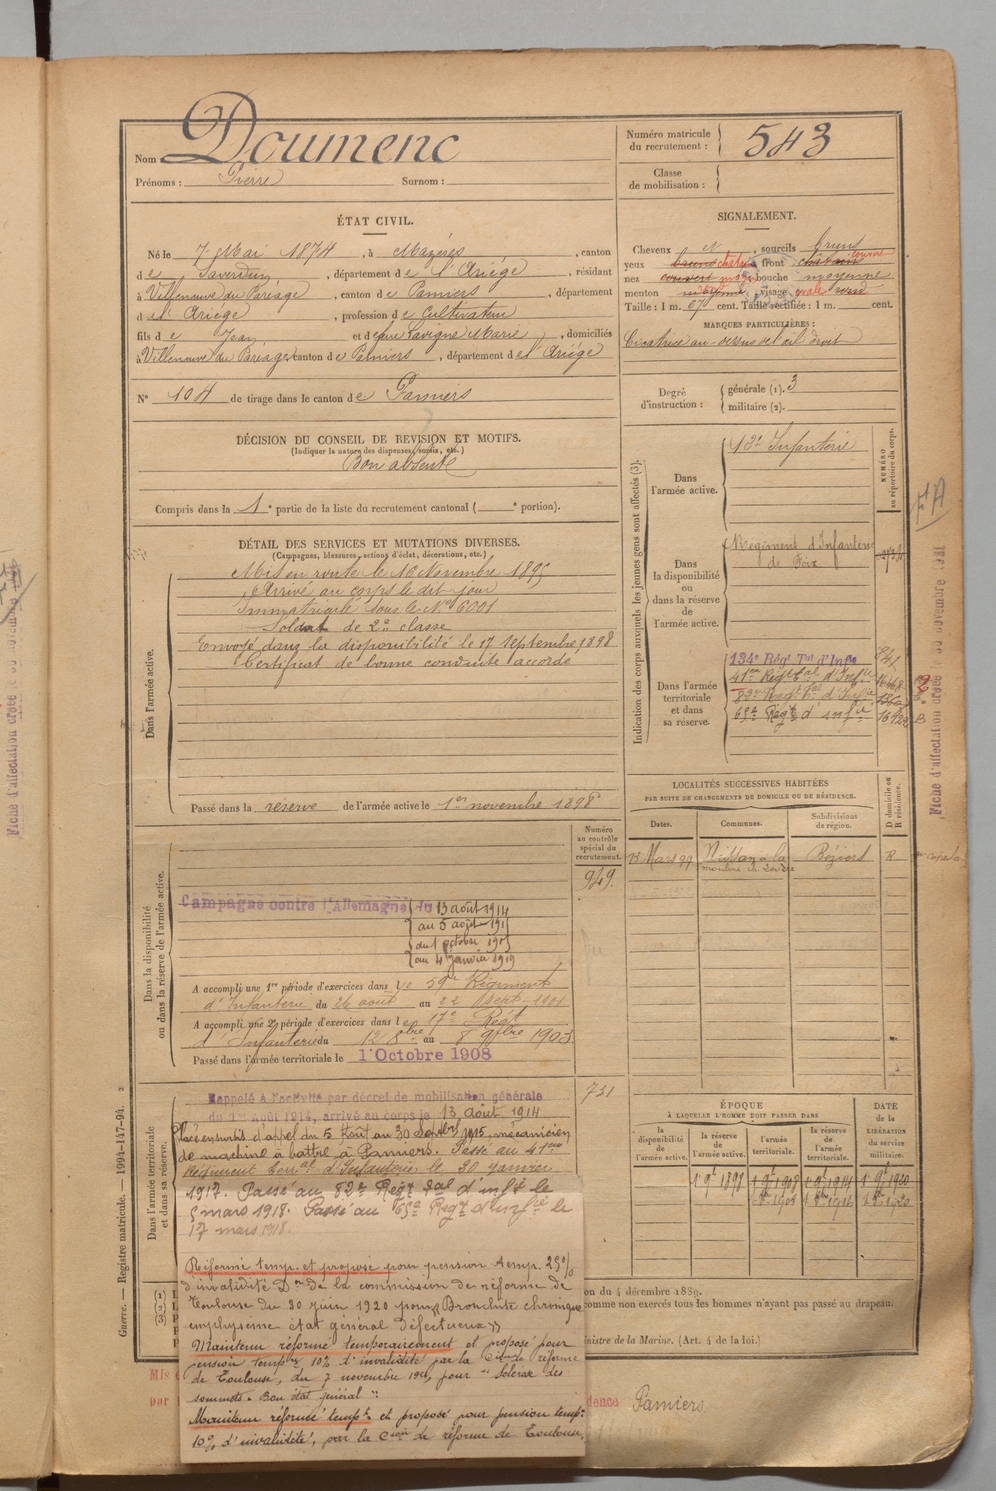 Nom Doumenc
Prénoms : Pierre Surnom :
Numéro matricule du recrutement : 543
Classe de mobilisation :
ÉTAT CIVIL.
Né le 7 Mai 1874, à Mazères, canton
de Saverdun, département de l'Ariège, résidant
à Villeneuve du Paréage, canton de Pamiers, département
de l' Ariège, profession de Cultivateur
fils de Jean et de feue Lavigne Marie, domiciliés
à Villeneuve du Paréage, canton de Pamiers, département de l'Ariège
N° 104 de tirage dans le canton de Pamiers
SIGNALEMENT.
Cheveux et, sourcils bruns
yeux bruns châtain front
nez couvert bouche moyenne
menton rond, visage ovale rond
Taille : 1 m. 67 cent. Taille rectifiée : 1 m. cent.
MARQUES PARTICULIÈRES :
Cicatrice au dessus de l'œil droit
Degré d'instruction : générale (1). 3
militaire (2).
DÉCISION DU CONSEIL DE REVISION ET MOTIFS.
(Indiquer la nature des dispenses, sursis, etc.)
Bon absent
Compris dans la 1e partie de la liste du recrutement cantonal ( e portion).
DÉTAIL DES SERVICES ET MUTATIONS DIVERSES.
(Campagnes, blessures, actions d'éclat, décorations, etc.)
Dans l'armée active.
Mis en route le 16 Novembre 1895
Arrivé au corps le dit jour
Immatriculé sous le N° 6001
Soldat de 2e classe
Envoyé dans la disponibilité le 17 Septembre 1898
Certificat de bonne conduite accordé
Passé dans la réserve de l'armée active le 1er novembre 1898
Indication des corps auxquels les jeunes gens sont affectés (3).
NUMÉRO au répertoire du corps.
Dans l'armée active.
12e Infanterie
Dans la disponibilité ou dans la réserve de l'armée active.
Régiment d'Infanterie
de Foix
Dans l'armée territoriale et dans sa réserve.
134e Régt Tal d'Infie
41me Régt tal d'Infie
82e Régt tal d'Infie
65e Régt d'infie
FA
Fiche d'affectation créée le 30 novembre 1921
LOCALITÉS SUCCESSIVES HABITÉES
PAR SUITE DE CHANGEMENTS DE DOMICILE OU DE RÉSIDENCE.
Dates.
Communes.
Subdivisions de région.
D domicile ou R résidence.
13 Mars 99 Nissan à la Béziers R
Dans la disponibilité ou dans la réserve de l'armée active.
Numéro au contrôle spécial du recrutement.
949.
Campagne contre l'Allemagne du 13 août 1914
au 5 août 1915
du 1 octobre 1915
au 4 janvier 1919
A accompli une 1re période d'exercices dans le 59e Régiment
d'Infanterie du 26 août au 22 sept. 1901
A accompli une 2e période d'exercices dans le 17e Régt
d'Infanterie du 12 8bre au 8 9bre 1903
Passé dans l'armée territoriale le 1 Octobre 1908
Dans l'armée territoriale et dans sa réserve.
731
Rappelé à l'activité par décret de mobilisation générale
du 1er Août 1914, arrivé au corps le 13 août 1914
Placé en sursis d'appel du 5 Août au 30 Septbre 1915 mécanicien
de machine à battre à Pamiers. Passé au 41me
Régiment Terral d'Infanterie le 30 janvier
1917. Passé au 82e Régt Tal d'infie le
5 mars 1918. Passé au 65e Régt d'infie le
17 mars 1918.
Réformé temp. et proposé pour pension temp. 25%
d'invalidité Don de la commission de réforme de
Toulouse du 30 juin 1920 pour Bronchite chronique
emphysème état général défectueux
Maintenu réformé temporairement et proposé pour
pension tempre 10% d'invalidité par la Cion de réforme
de Toulouse, du 7 novembre 1921, pour "Sclérose des
sommets. Bon état général"
Maintenu réformé tempt. et proposé pour pension temp.
10% d'invalidité, par la Cion de réforme de Toulouse,
ÉPOQUE
À LAQUELLE L'HOMME DOIT PASSER DANS
la disponibilité de l'armée active.
la réserve de l'armée active.
l'armée territoriale.
la réserve de l'armée territoriale.
DATE de la LIBÉRATION du service militaire.
on du 4 décembre 1889.
omme non exercés tous les hommes n'ayant pas passé au drapeau.
nistre de la Marine. (Art. 4 de la loi.)
Mis
par
dence Pamiers
Guerre. — Registre matricule. — 1994-147-94.